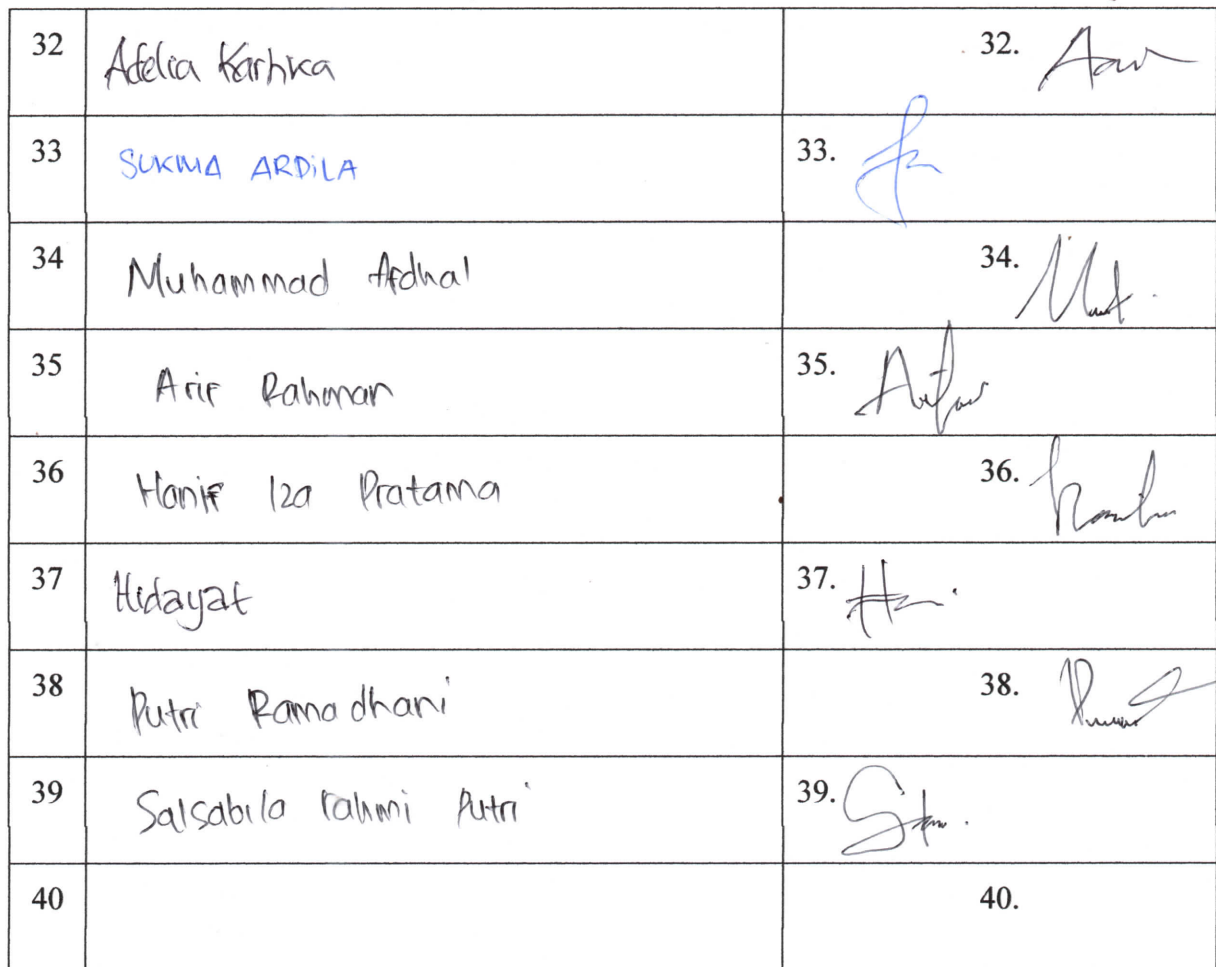 32 Adelia Kartika 32.
33 SUKMA ARDILA 33.
34 Muhammad Afdhal 34.
35 Arif Rahman 35.
36 Hanif Iza Pratama 36.
37 Hidayat 37.
38 Putri Ramadhani 38.
39 Salsabila rahmi Putri 39.
40 40.